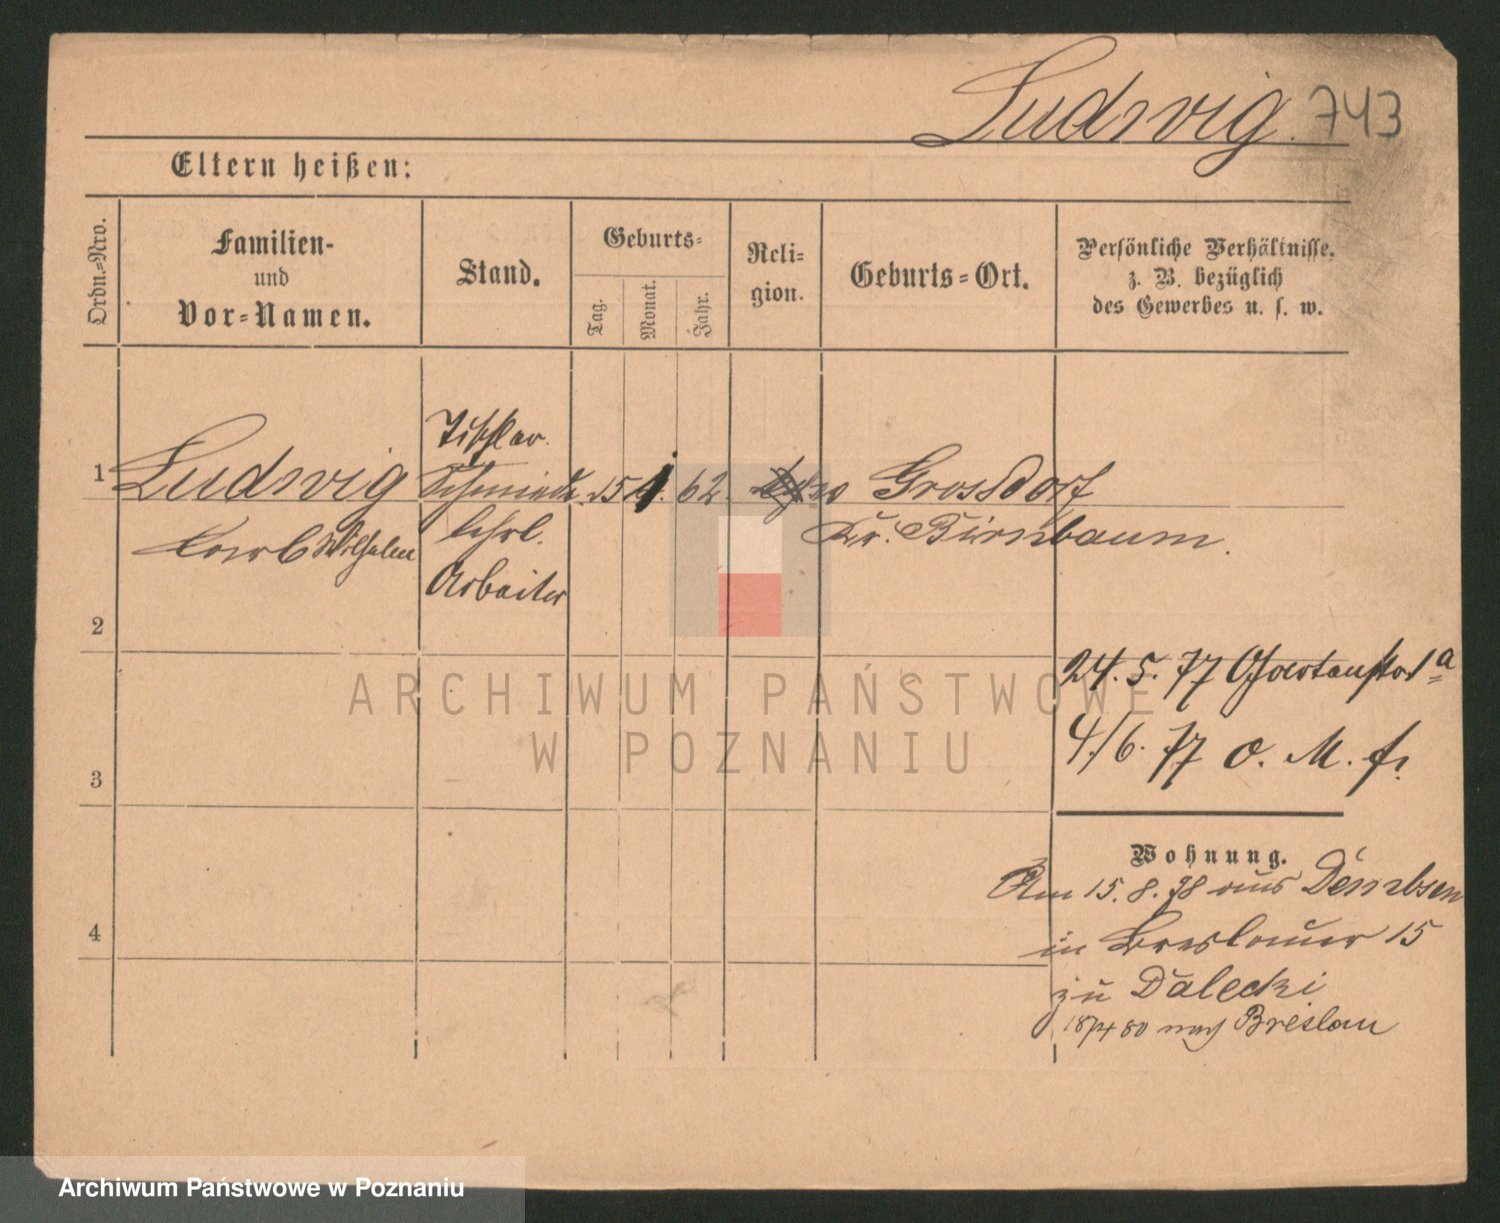 Ludwig. 743
Eltern heißen:
Ordn.=Nro.
Familien-
und
Vor=Namen.
Stand.
Geburts=
Tag.
Monat.
Jahr.
Reli=
gion.
Geburts=Ort.
Persönliche Verhältnisse.
z. B. bezüglich
des Gewerbes u. s. w.
1
Ludwig
Carl Wilhelm
Tischler
Schmiede
lehrl.
Arbeiter
15
62
Grossdorf
Kr. Birnbaum.
2
24. 5. 77
3
4/6. 77 O. M. fr.
Wohnung.
Am 15. 8. 78 aus Dembsen
4
in Breslauer 15
zu Dalecki
18/4 80 nach Breslau
ARCHIWUM PAŃSTWOWE
W POZNANIU
Archiwum Państwowe w Poznaniu